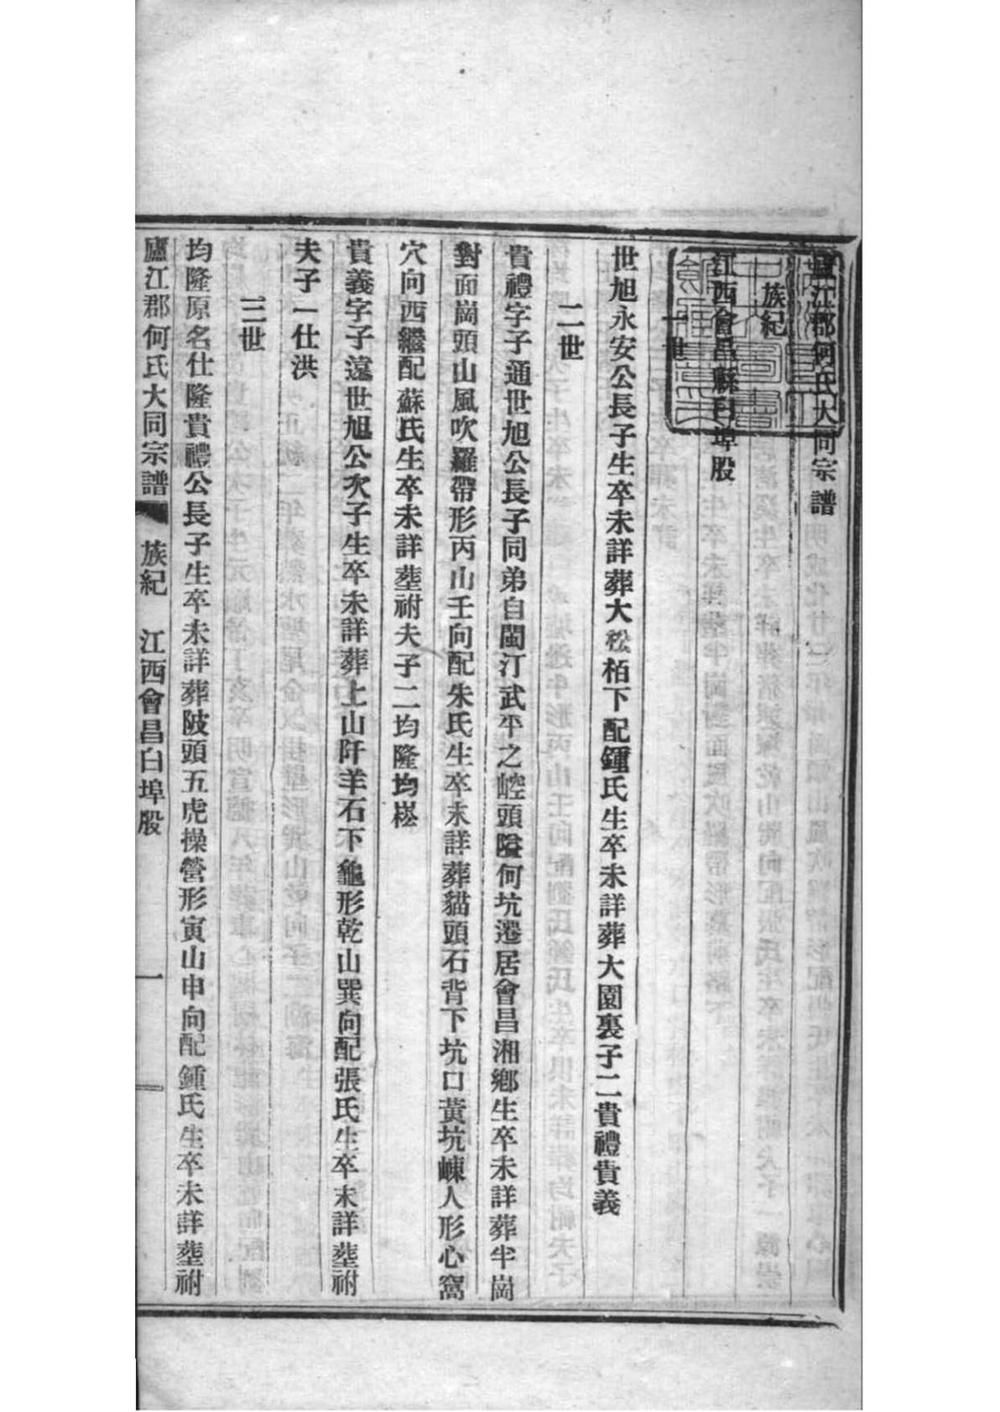 廬江郡何氏大同宗譜
族紀
江西會昌縣白埠股
一世
世旭永安公長子生卒未詳葬大松栢下配鍾氏生卒未詳葬大園裏子二貴禮貴義
二世
貴禮字子通世旭公長子同弟自閩汀武平之崆頭隘何坑遷居會昌湘鄉生卒未詳葬半崗
對面崗頭山風吹羅帶形丙山壬向配朱氏生卒未詳葬貓頭石背下坑口黃坑崠人形心窩
穴向西繼配蘇氏生卒未詳塟祔夫子二均隆均崧
貴義字子遠世旭公次子生卒未詳葬上山阡羊石下龜形乾山巽向配張氏生卒未詳塟祔
夫子一仕洪
三世
均隆原名仕隆貴禮公長子生卒未詳葬陂頭五虎操營形寅山申向配鍾氏生卒未詳塟祔
廬江郡何氏大同宗譜 族紀 江西會昌白埠股 一